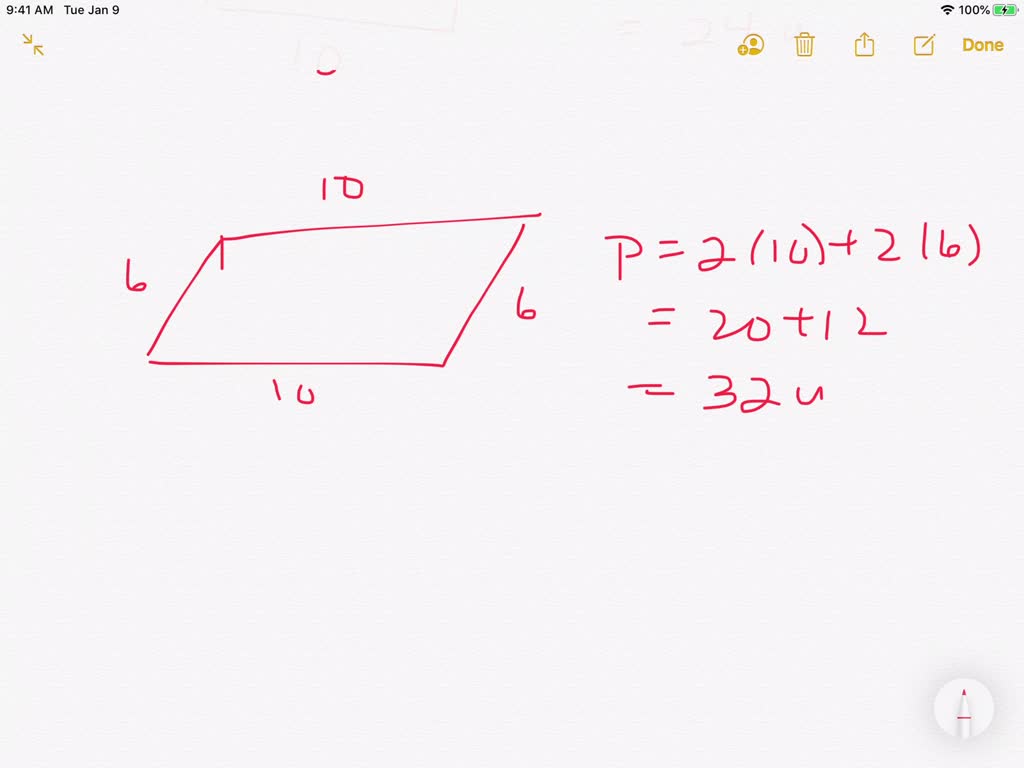 9:41 AM Tue Jan 9
100%
= 24
10
Done
10
6
6
10
P = 2(10) + 2(6)
= 20 + 12
= 32 u